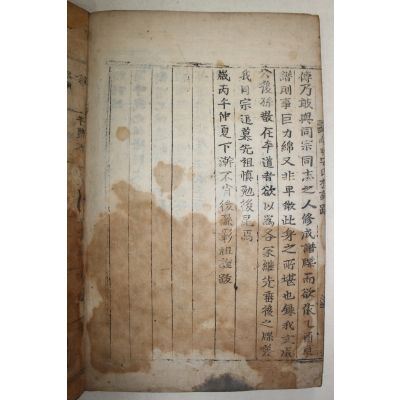 傳乃敢與同宗同志之人修成譜牒而欲傲乙酉草
譜則事巨力綿又非卑微此身之所堪也錄我文成
公後孫散在本道者欲以爲各家繼先垂後之牒雲
我同宗追慕先祖愼勉後昆焉
歲丙午仲夏下澣不肖後孫彰祖謹跋